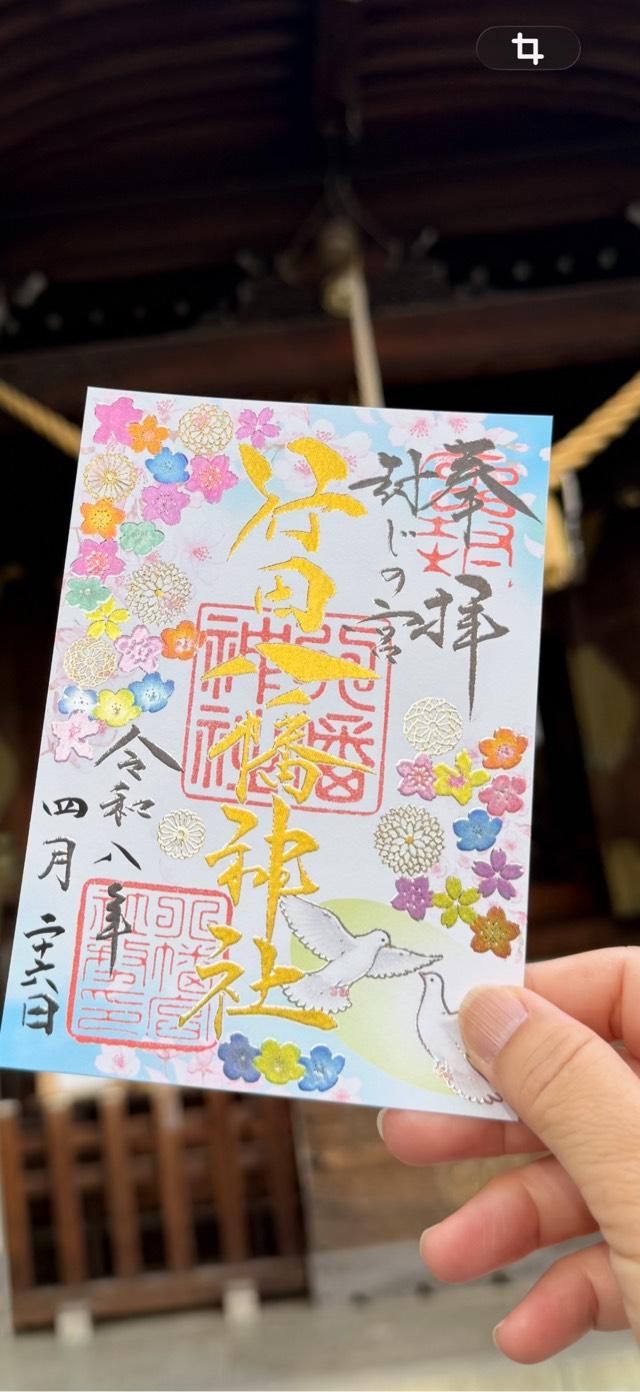 奉拝
封じの宮
行田八幡神社
令和八年
四月二十六日
八幡
神社